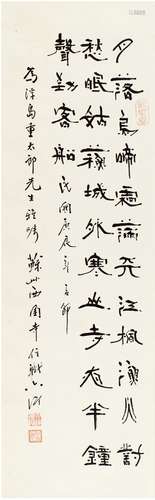 月落烏啼霜滿天江楓漁火對
愁眠姑蘇城外寒山寺夜半鐘
聲到客船 民國庚辰 節
為浮島重太郎先生雅 蘇州西園寺住職六